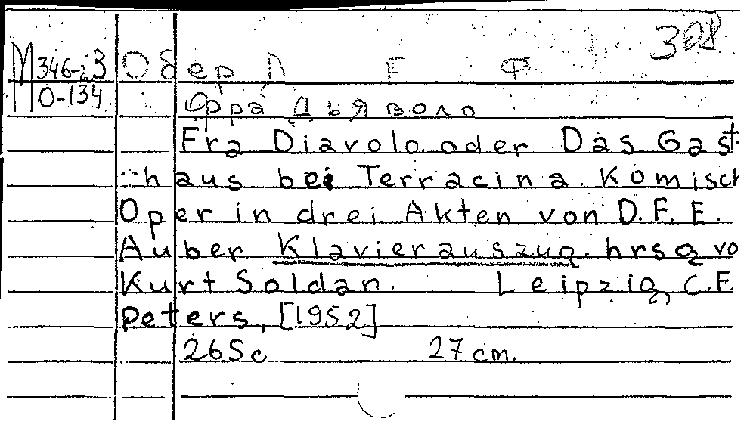 308
М 346-3 Обер Д Ф
О-134
Фра Дьяволо
Fra Diavolo oder Das Gast-
haus bei Terracina. Komisch
Oper in drei Akten von D. F. E.
Auber Klavierauszug. hrsg vo
Kurt Soldan. Leipzig, C. F.
Peters, [1952]
265 c 27 cm.